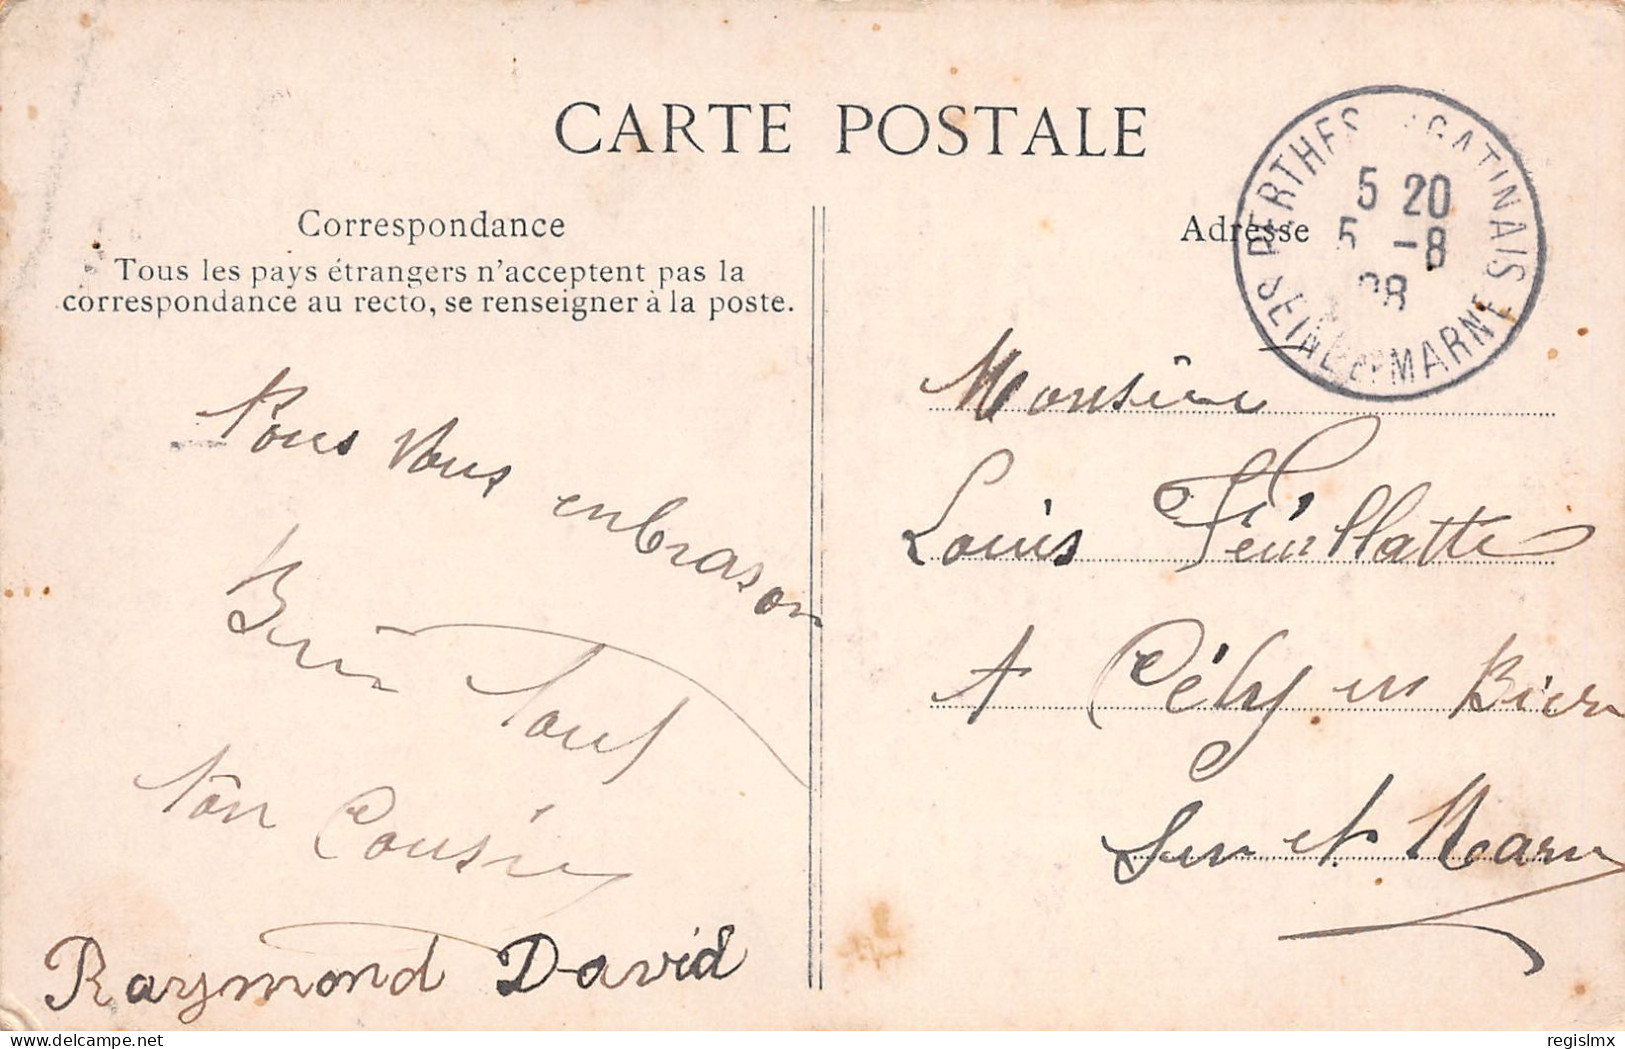 CARTE POSTALE
Correspondance
Tous les pays étrangers n'acceptent pas la
correspondance au recto, se renseigner à la poste.
Nous vous
enbrason
Bien
ton Cousin
Raymond David
Adresse
PERTHES GATINAIS
5 20
5 -8
08
SEINE ET MARNE
Monsieur
Louis Feuillatte
A Cély en Bière
Sein et Marne
delcampe.net
regislmx